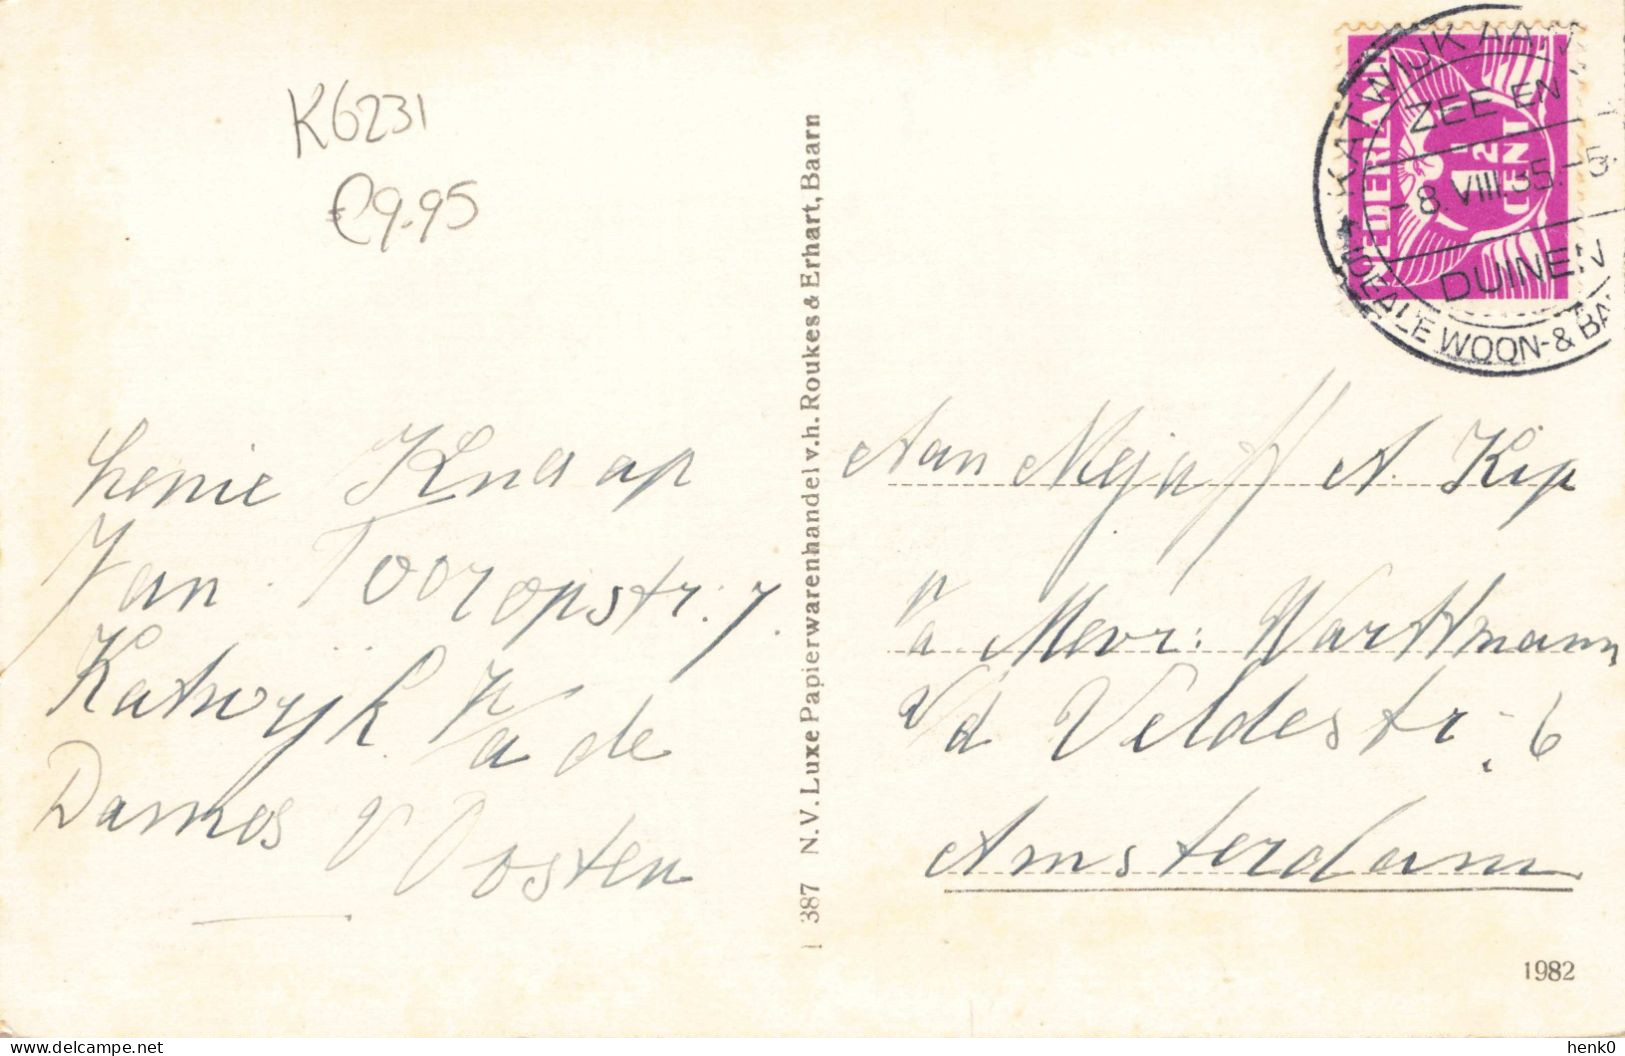 K6231
€9.95
Lenie Knaap
Jan Tooropstr: 7.
Katwijk p/a de
Dames v Oosten
387 N.V. Luxe Papierwarenhandel v.h. Roukes & Erhart, Baarn
NEDERLAND
1½
CENT
KATWIJK AAN
ZEE EN
-8.VIII.35.-5.
DUINEN
IDEALE WOON- & BA
Aan Mejuff A. Kip
p/a Mevr: Warttmann
v/d Veldestr: 6
Amsterdam
1982
delcampe.net
henk0